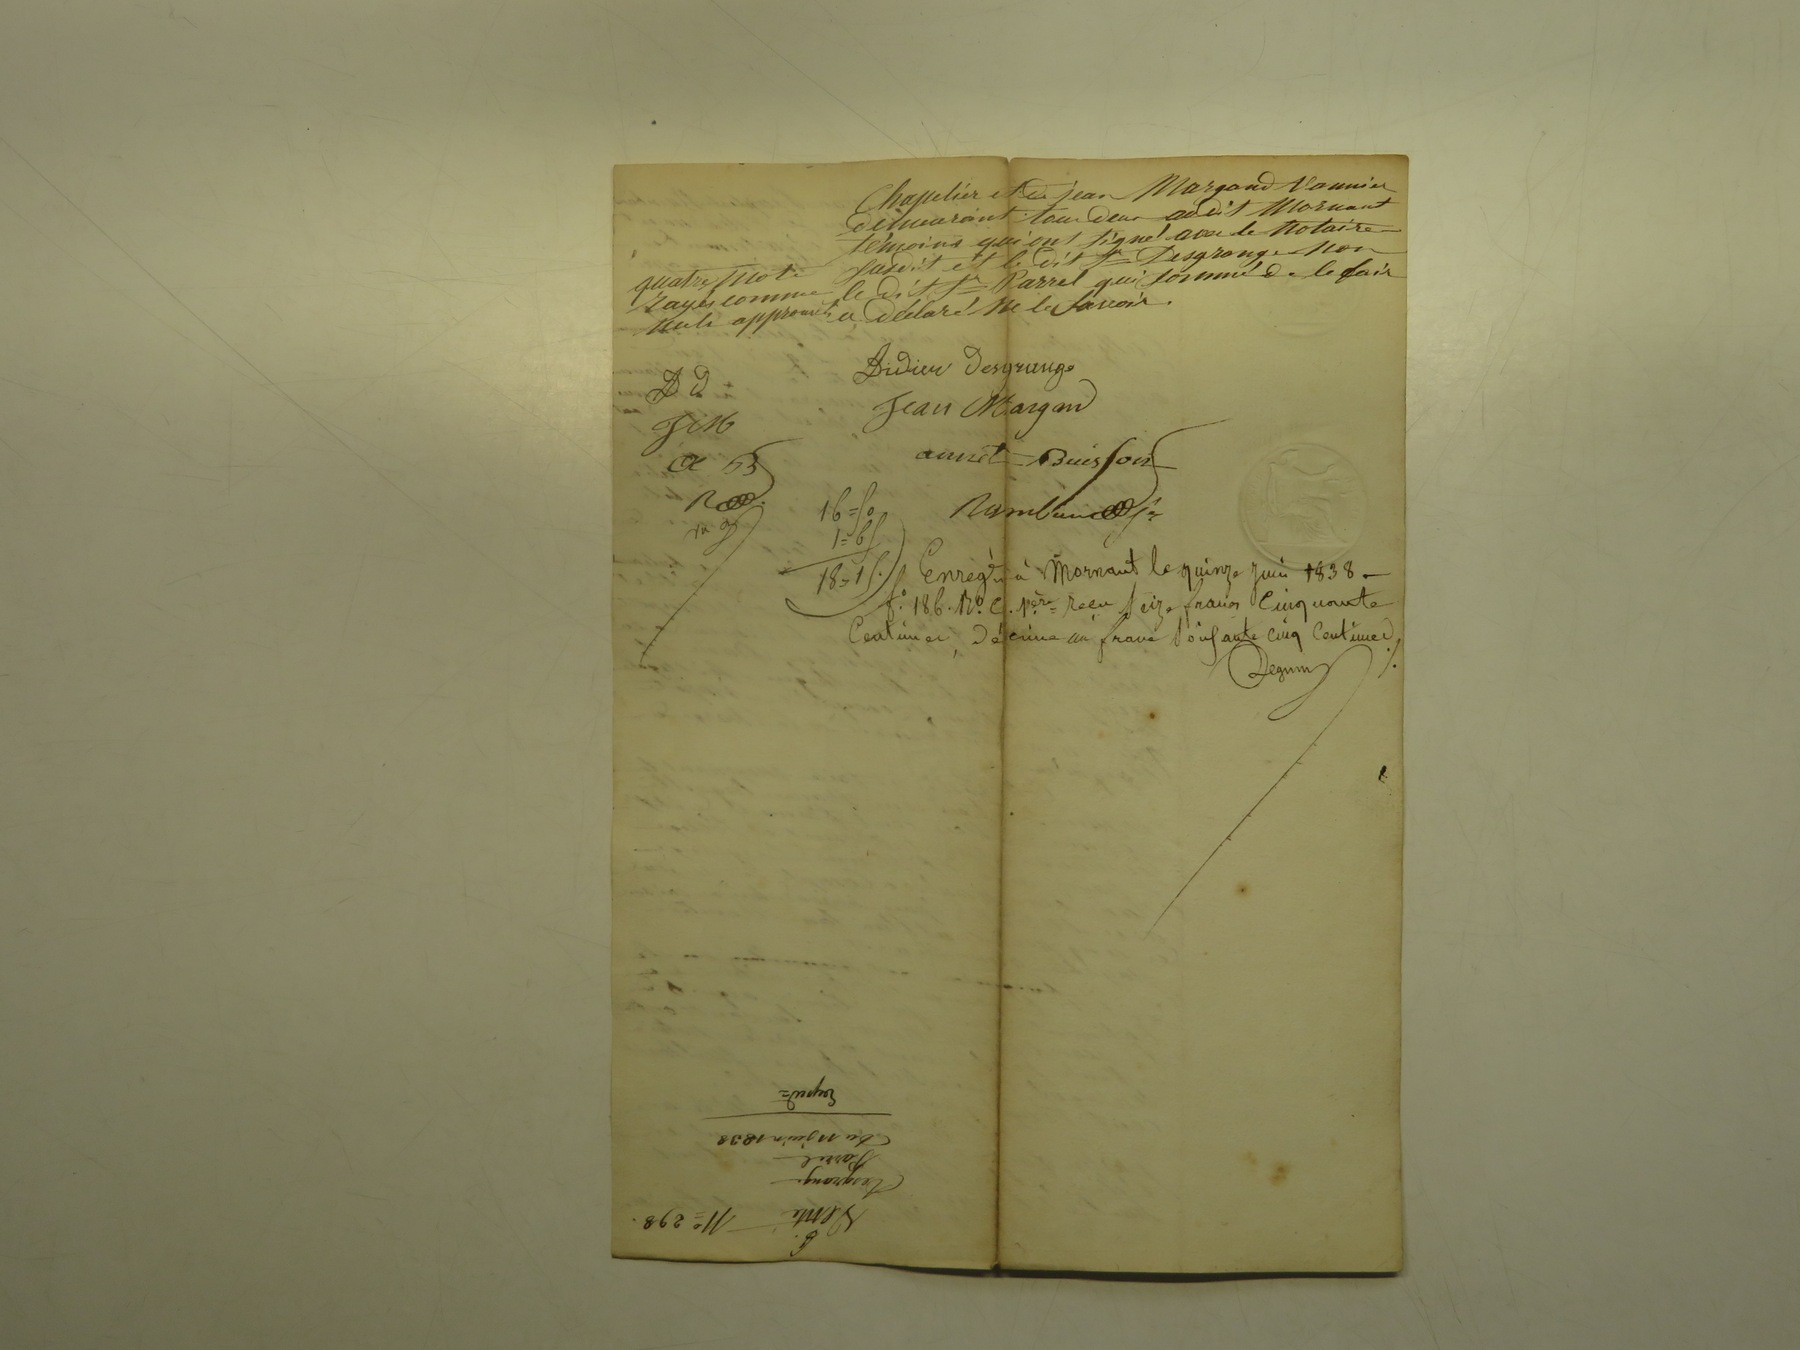 Chapelier et de jean Margand Vannier
demeurant tous deux audit Mornant
témoins qui ont signé avec le Notaire
susdit et le dit Sr Desgrange Non
le dit Sr Parrel qui sommé de le fair
a déclaré ne le savoir.
quatre mots
rayés comme
nuls approuvés
Didier Desgrange
Jean Margand
annet Buisson
D d
J M
a B
16=50
1=65
18=15
Enregtré à Mornant le quinze juin 1838
fo. 186. Ro. C. 1ère reçu seize francs cinquante
centimes, décime un franc soixante cinq centimes
Vente No=298.
Desgrange
Parrel
Du 11 juin 1838
Expedé